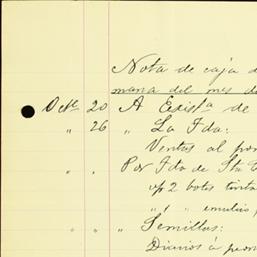 Nota de caja d
mana del mes de
Octe 20 A Exista de
" 26 " La Fda:
Ventas al pro
" " Por Fdo de Sta
2 botes tinta
" 1 " emulsi
" " " Semillas:
Diarios á peon